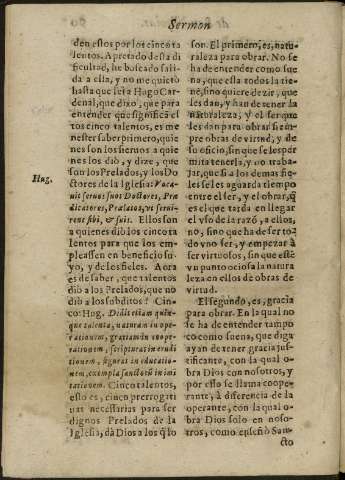 Sermon
den estos por los cinco ta
lentos. Apretado desta di
ficultad, he buscado sali-
da a ella, y no me quietò
hasta que leì a Hugo Car-
denal, que dixo, que para
entender que significa es
tos cinco talentos, es me
nester saber primero, quie
nes son los siervos a quie
nes los diò, y dize, que
son los Prelados, y los Do
ctores de la Iglesia: Voca-
Hug.
uit seruos suos Doctores, Præ
dicatores, Prælatos, vt serui-
rent sibi, & suis. Ellos son
a quienes diò los cinco ta
lentos para que los em-
pleassen en beneficio su-
yo, y de sus fieles. Aora
es de saber, que talentos
diò a los Prelados, que no
diò a los subditos? Cin-
co: Hug. Didit etiam quin-
que talenta, naturam in ope-
rationem, gratiam in coope-
rationem, scripturas in erudi
tionem, figuras in educatio-
nem, exempla sanctorũ in imi
tationem. Cinco talentos,
esto es, cinco prerrogati
uas necessarias para ser
dignos Prelados de la
Iglesia, dà Dios a los q̃ lo
son. El primero, es, natu-
raleza para obrar. No se
ha de entender como sue
na, que essa todos la tie
nẽ, sino quiere dezir, que
les dan, y han de tener la
naturaleza; y el ser que
les dan para obrar siem-
pre obras de virtud, y de
su oficio, sin que se les per
mita tenerla, y no traba-
jar, que si a los demas fie
les se les aguarda tiempo
entre el ser, y el obrar, q̃
es el que tarda en llegar
el vso de la razõ, a ellos,
no, sino que ha de ser to-
do vno ser, y empezar à
ser virtuosos, sin que estè
vn punto ociosa la natura
leza en ellos de obras de
virtud.
El segundo, es, gracia
para obrar. En la qual no
se ha de entender tampo
co como suena, que diga
ayan de tener gracia jus-
tificante, con la qual o-
bra Dios con nosotros, y
por esso se llama coope-
rante, à diferencia de la
operante, con la qual o-
bra Dios solo en noso-
tros, como enseñò San-
cto